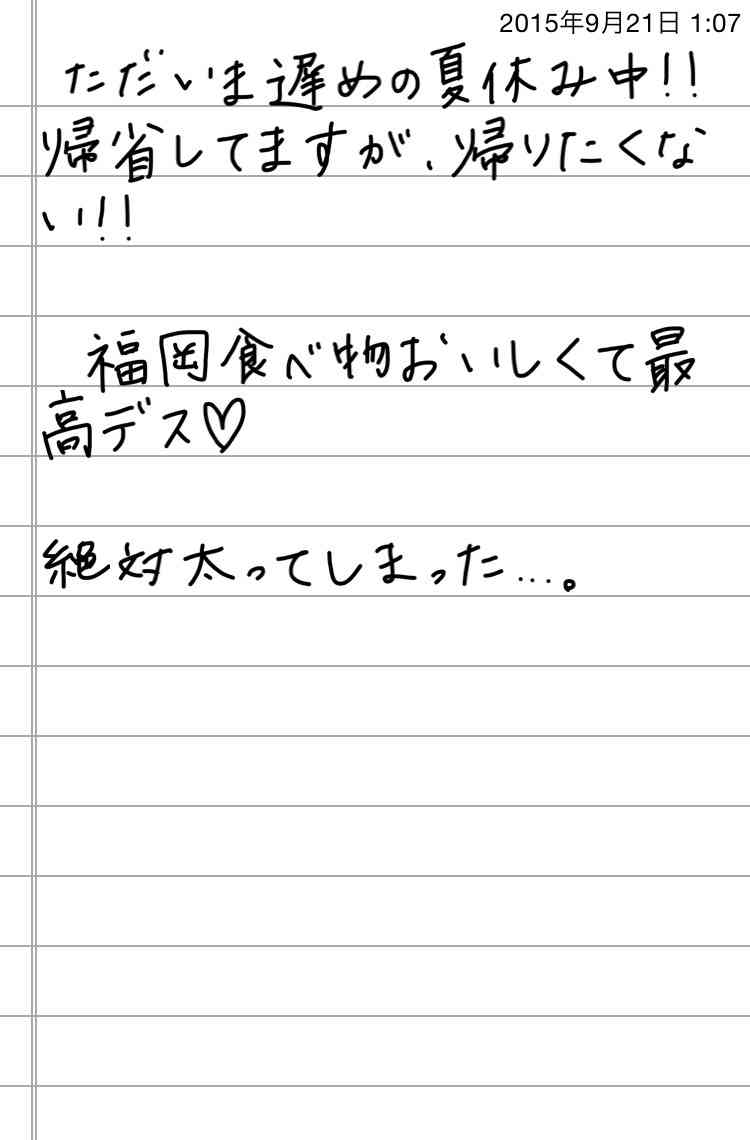 2015年9月21日 1:07
ただいま遅めの夏休み中!!
帰省してますが、帰りたくな
い!!
福岡食べ物おいしくて最
高デス♡
絶対太ってしまった…。